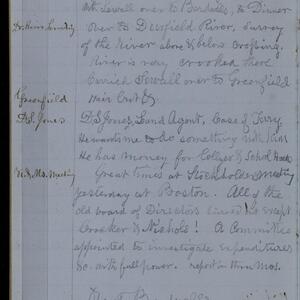 with Sewell over to Bardwells, to Dinner
over to Deerfield River, Survey
of the River above & below Crossing.
River is very crooked here
Carried Sewell over to Greenfield
Hair Cut &c
Greenfield
D.S. Jones
D.S. Jones, Land Agent, Case of Terry
He wants me to do something with him
He has money for College & School
Meeting
Great times at Stockholders meeting
yesterday at Boston. All of the
old board of Directors except
Crocker & Nichols! A Committee
appointed to investigate expenditures
&c. with full power. report in three mos.